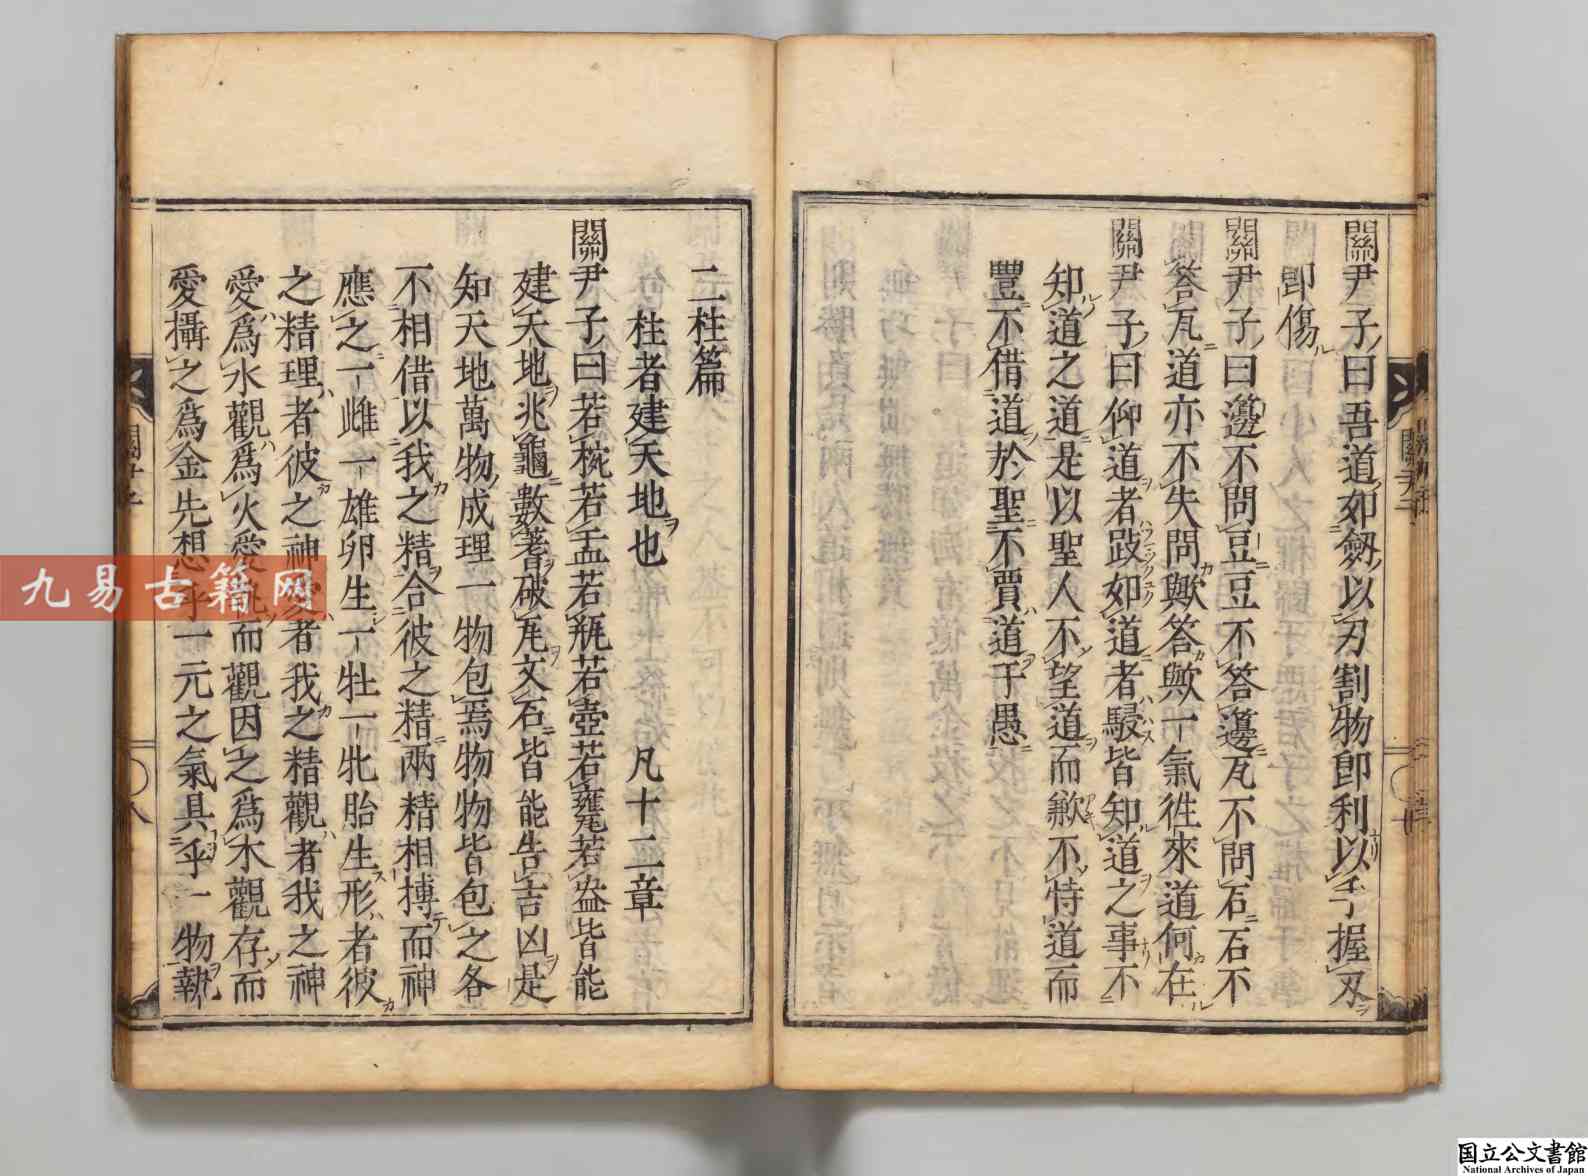 關尹子曰吾道如劔以刃割物即利以手握刃
即傷
關尹子曰籩不問豆豆不答籩瓦不問石石不
答瓦道亦不失問歟答歟一氣徃來道何在
關尹子曰仰道者跂如道者駸皆知道之事不
知道之道是以聖人不望道而歉不恃道而
豐不借道於聖不賈道于愚
二柱篇
柱者建天地也 凡十二章
關尹子曰若椀若盂若瓶若壺若甕若盎皆能
建天地兆龜數蓍破瓦文石皆能告吉凶是
知天地萬物成理一物包焉物物皆包之各
不相借以我之精合彼之精兩精相摶而神
應之一雌一雄卵生一牡一牝胎生形者彼
之精理者彼之神愛者我之精觀者我之神
愛爲水觀爲火愛執而觀因之爲木觀存而
愛攝之爲金先想乎一元之氣具乎一物執
九易古籍网
国立公文書館
National Archives of Japan